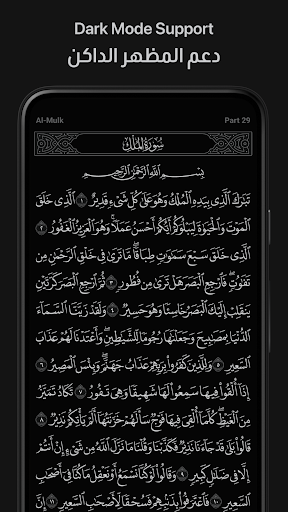 Dark Mode Support
دعم المظهر الداكن
Al-Mulk
Part 29
سُورَةُ المُلْكِ
بِسْمِ اللَّهِ الرَّحْمَٰنِ الرَّحِيمِ
تَبَٰرَكَ الَّذِي بِيَدِهِ الْمُلْكُ وَهُوَ عَلَىٰ كُلِّ شَيْءٍ قَدِيرٌ ١ الَّذِي خَلَقَ
الْمَوْتَ وَالْحَيَوٰةَ لِيَبْلُوَكُمْ أَيُّكُمْ أَحْسَنُ عَمَلًا وَهُوَ الْعَزِيزُ الْغَفُورُ ٢
الَّذِي خَلَقَ سَبْعَ سَمَٰوَٰتٍ طِبَاقًا مَّا تَرَىٰ فِي خَلْقِ الرَّحْمَٰنِ مِن
تَفَٰوُتٍ فَارْجِعِ الْبَصَرَ هَلْ تَرَىٰ مِن فُطُورٍ ٣ ثُمَّ ارْجِعِ الْبَصَرَ كَرَّتَيْنِ
يَنقَلِبْ إِلَيْكَ الْبَصَرُ خَاسِئًا وَهُوَ حَسِيرٌ ٤ وَلَقَدْ زَيَّنَّا السَّمَاءَ
الدُّنْيَا بِمَصَٰبِيحَ وَجَعَلْنَٰهَا رُجُومًا لِّلشَّيَٰطِينِ وَأَعْتَدْنَا لَهُمْ عَذَابَ
السَّعِيرِ ٥ وَلِلَّذِينَ كَفَرُوا بِرَبِّهِمْ عَذَابُ جَهَنَّمَ وَبِئْسَ الْمَصِيرُ ٦
إِذَا أُلْقُوا فِيهَا سَمِعُوا لَهَا شَهِيقًا وَهِيَ تَفُورُ ٧ تَكَادُ تَمَيَّزُ
مِنَ الْغَيْظِ كُلَّمَا أُلْقِيَ فِيهَا فَوْجٌ سَأَلَهُمْ خَزَنَتُهَا أَلَمْ يَأْتِكُمْ نَذِيرٌ ٨
قَالُوا بَلَىٰ قَدْ جَاءَنَا نَذِيرٌ فَكَذَّبْنَا وَقُلْنَا مَا نَزَّلَ اللَّهُ مِن شَيْءٍ إِنْ أَنتُمْ
إِلَّا فِي ضَلَٰلٍ كَبِيرٍ ٩ وَقَالُوا لَوْ كُنَّا نَسْمَعُ أَوْ نَعْقِلُ مَا كُنَّا فِي أَصْحَٰبِ
السَّعِيرِ ١٠ فَاعْتَرَفُوا بِذَنبِهِمْ فَسُحْقًا لِّأَصْحَٰبِ السَّعِيرِ ١١